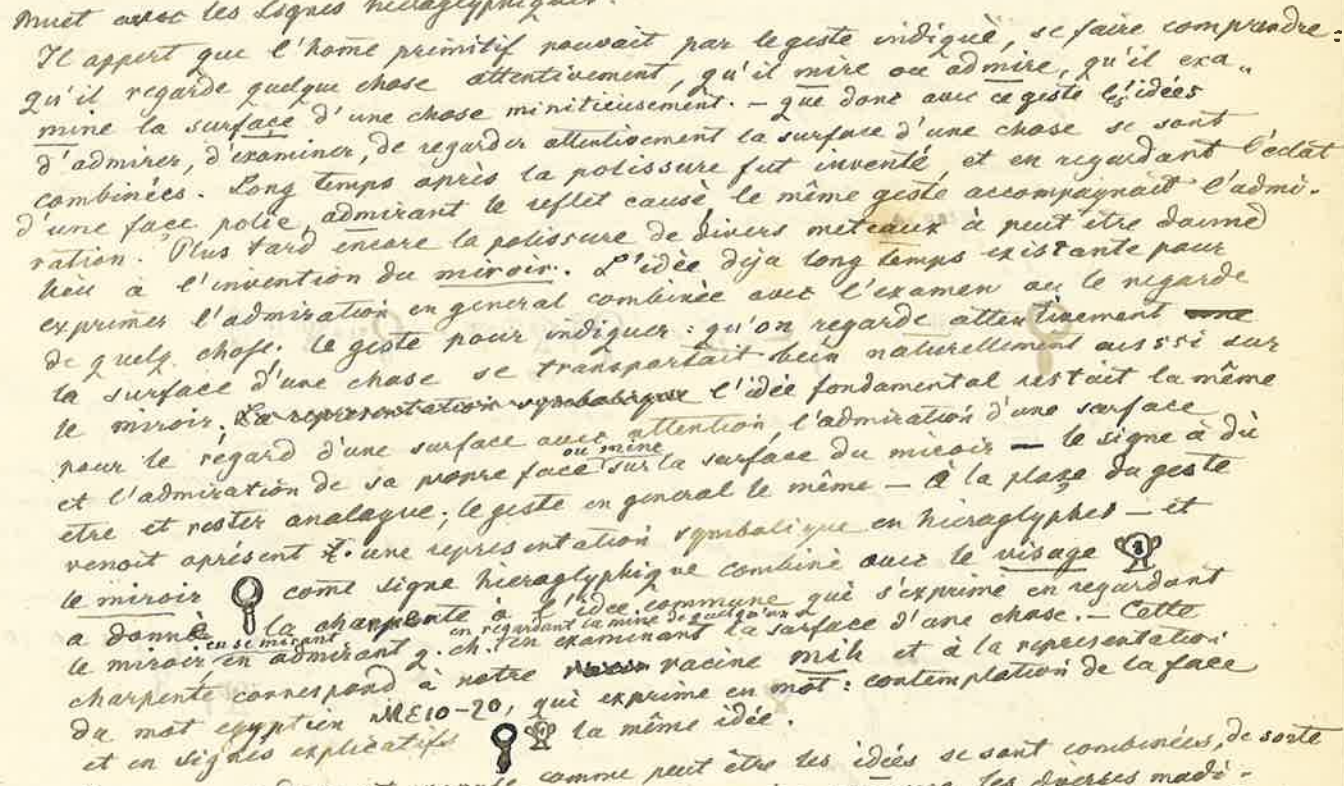 muet avec les signes hieraglyphiques.
Il appert que l'home primitif pouvait par le geste indiquè, se faire comprendre:
qu'il regarde quelque chose attentivement, qu'il mire ou admire, qu'il exa„
mine la surface d'une chose minitieusement. – que donc avec ce geste les idées
d'admirer, d'examiner, de regarder attentivement la surface d'une chose se sont
combinées. Long temps après la polissure fut inventé, et en regardant l'éclat
d'une face polie, admirant le reflet causè le même geste accompagnait l'admi-
ration. Plus tard encore la polissure de divers meteaux à peut être donnè
lieu à l'invention du miroir. L'idèe dija long temps existante pour
exprimer l'admiration en general combinèe avec l'examen ou le regarde
de quelq. chose. le geste pour indiquer: qu'on regarde attentivement
la surface d'une chose se transportait bein naturellement aussi sur
le miroir. La representation symbolique l'idèe fondamental restait la même
pour le règard d'une surface avec attention, l'admiration d'une surface
et l'admiration de sa propre face ou mine sur la surface du miroir — le signe à dû
etre et rester analogue; le geste en general le même — à la place du geste
venoit aprèsent une representation symbolique en hieroglyphes — et
le miroir come signe hieraglyphique combinè avec le visage
a donnè la charpente à l'idee commune què s'exprime en regardant
le miroir, en se mirant en admirant q. ch. en regardant la mine de quelqu'un en examinant la surface d'une chose. – Cette
charpente correspond à notre racine mih et à la representation
du mot egyptien ME10-20, què exprime en mot: contemplation de la face
et en signes explicatifs la même idée.
comme peut être les idées se sont combinées, de sorte
les diverses modi-